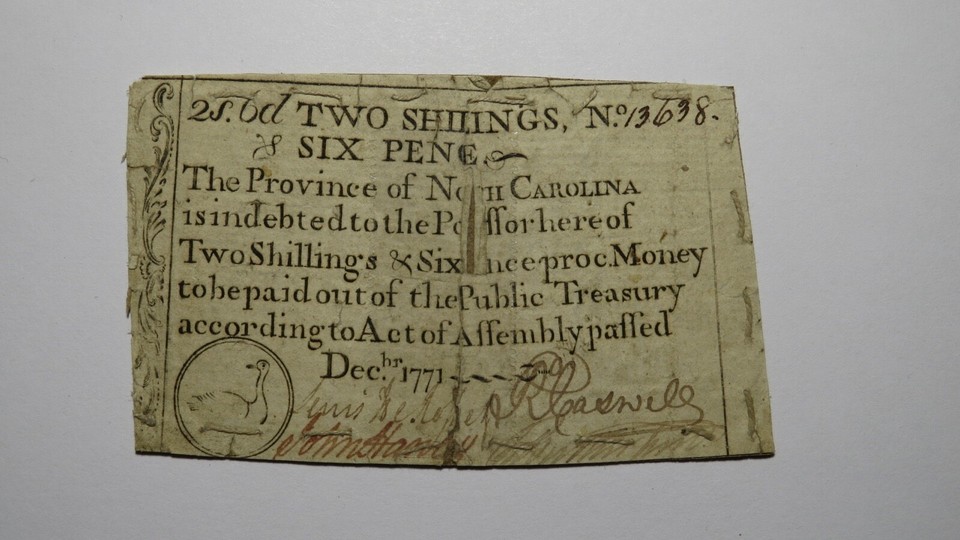 2s.6d TWO SHILLINGS, No. 13638.
& SIX PENE
The Province of North CAROLINA
is indebted to the Poſſor here of
Two Shillings & Six nce proc. Money
to be paid out of the Public Treasury
according to Act of Aſſembly paſſed
Dec.br 1771
Lewis De Rosset RCaswell
John Harvey